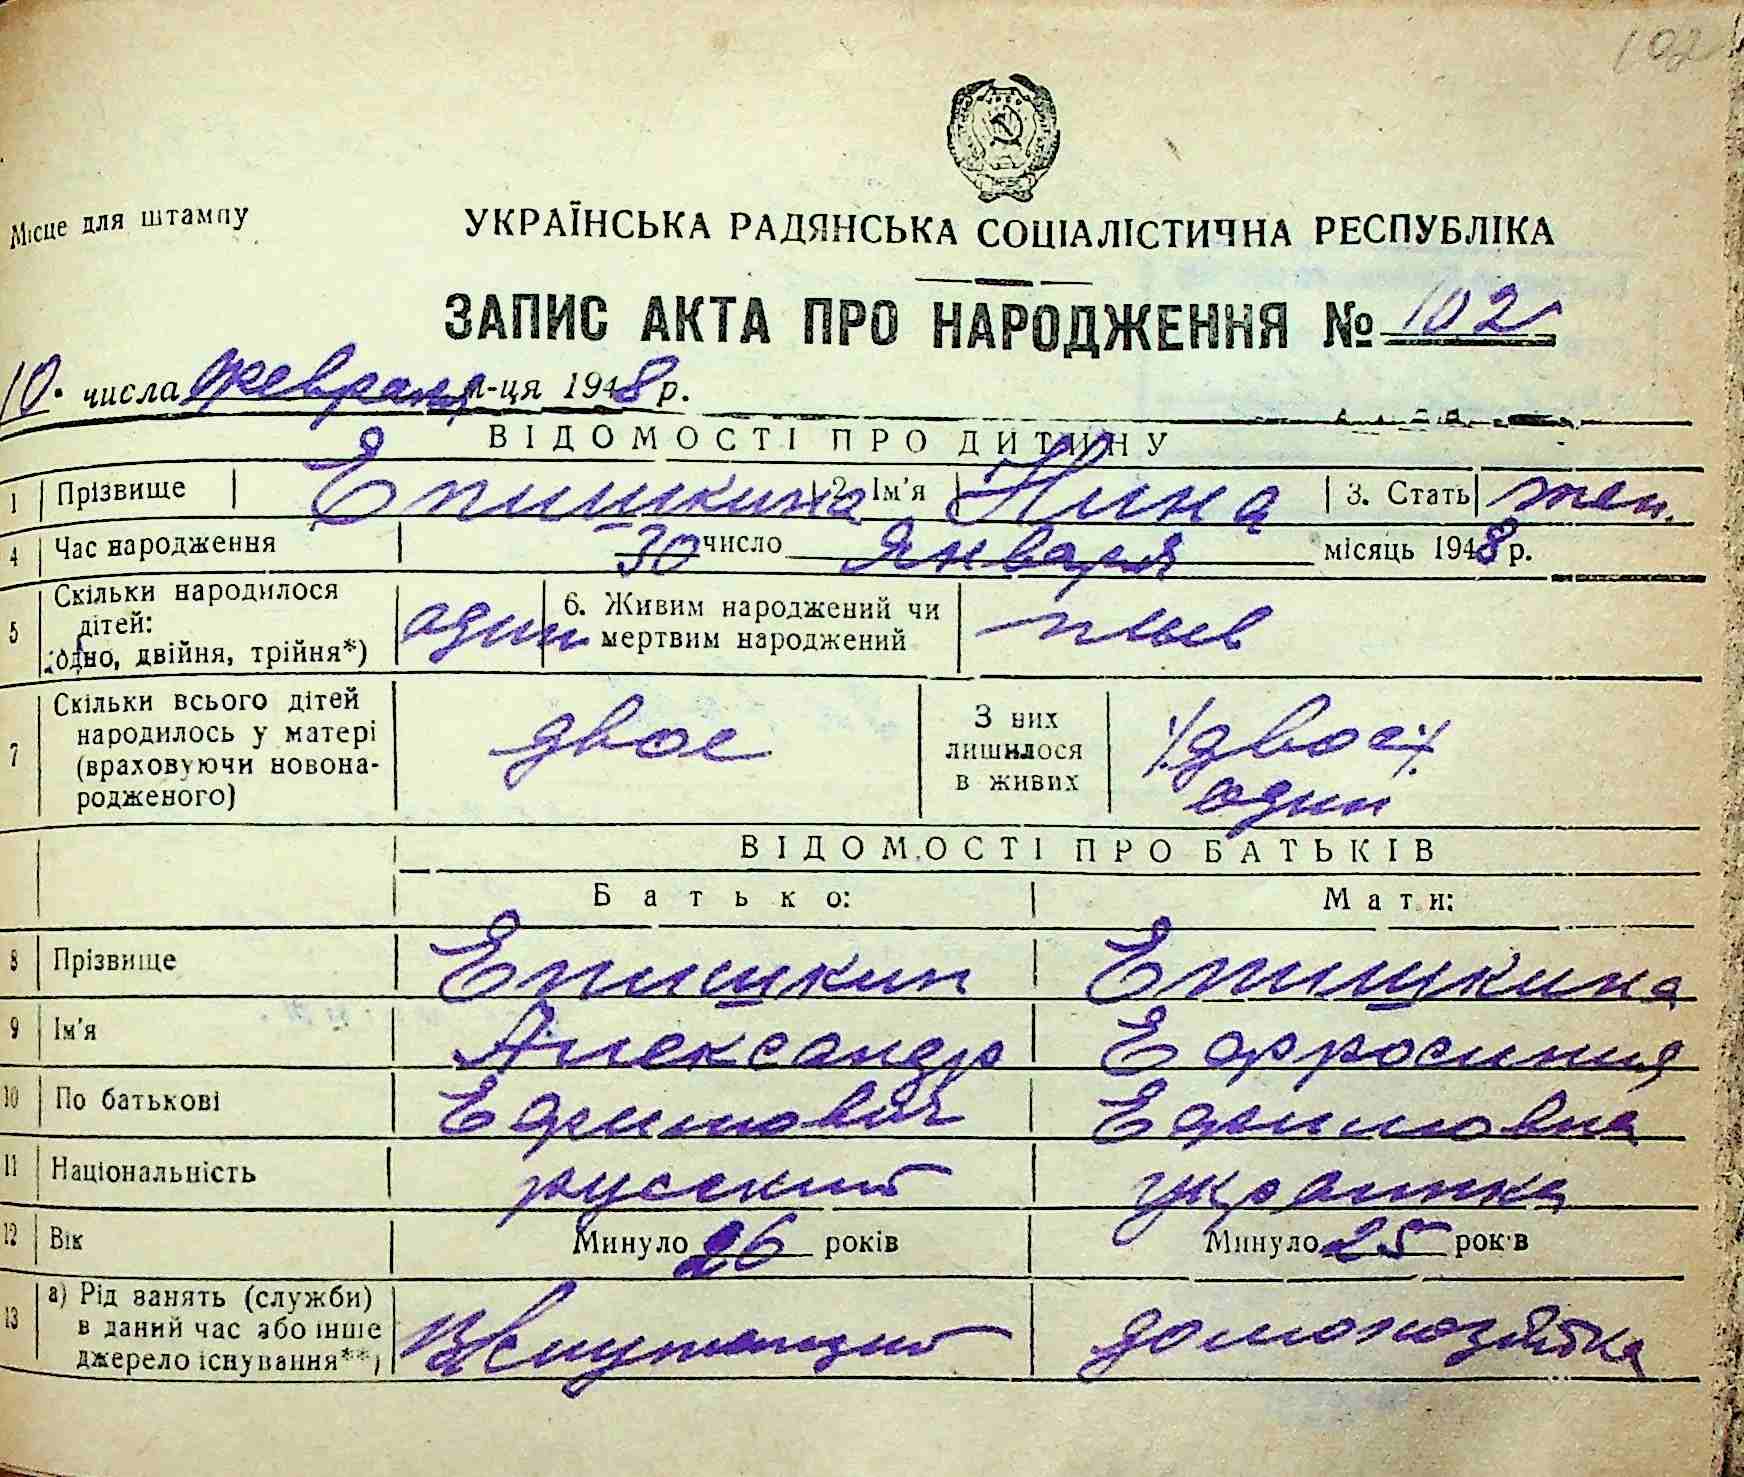 102
Місце для штампу
УКРАЇНСЬКА РАДЯНСЬКА СОЦІАЛІСТИЧНА РЕСПУБЛІКА
ЗАПИС АКТА ПРО НАРОДЖЕННЯ № 102
10. числа февраля м-ця 1948 р.
ВІДОМОСТІ ПРО ДИТИНУ
1 Прізвище Епишкина 2. Ім'я Нина 3. Стать жен.
4 Час народження 30 число Января місяць 1948 р.
5 Скільки народилося дітей: (одно, двійня, трійня*) один 6. Живим народжений чи мертвим народжений
7 Скільки всього дітей народилось у матері (враховуючи новонародженого) двое З них лишилося в живих двое один
ВІДОМОСТІ ПРО БАТЬКІВ
Батько: Мати:
8 Прізвище Епишкин Епишкина
9 Ім'я Александр Ефросиния
10 По батькові Ефимович Ефимовна
11 Національність русский украинка
12 Вік Минуло 26 років Минуло 25 років
13 а) Рід занять (служби) в даний час або інше джерело існування**) В/служащий домохозяйка